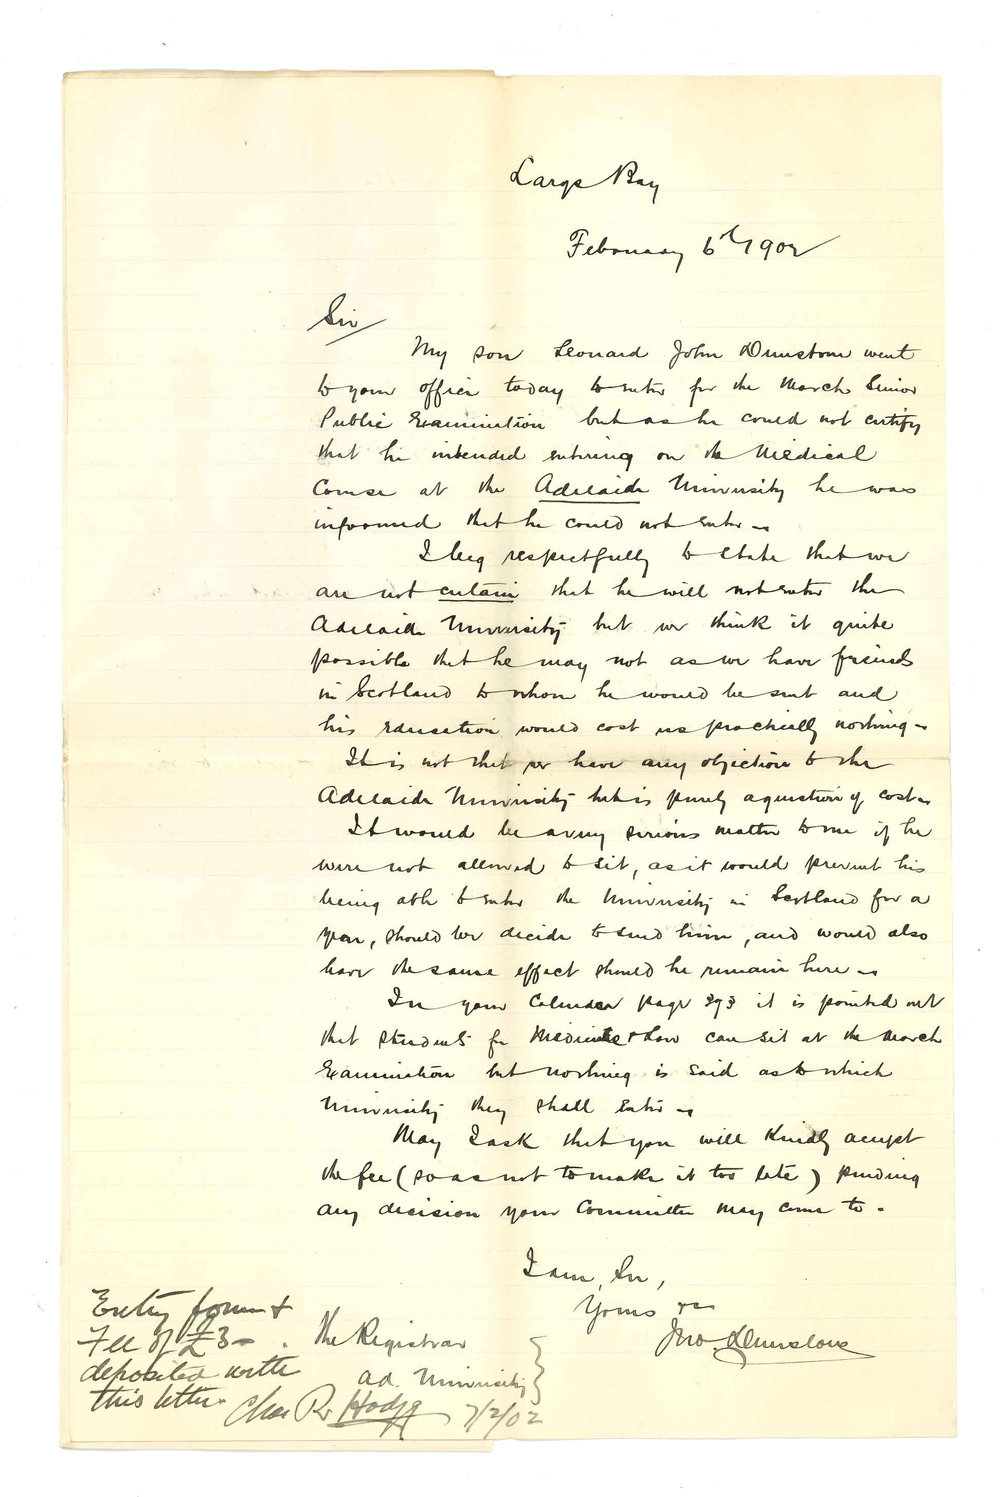 Largs Bay
February 6th 1902
Sir
My son Leonard John Dunstone went
to your office today to enter for the March Senior
Public Examination but as he could not certify
that he intended entering on the Medical
Course at the Adelaide University he was
informed that he could not enter -
I beg respectfully to state that we
are not certain that he will not enter the
Adelaide University but we think it quite
possible that he may not as we have friends
in Scotland to whom he would be sent and
his education would cost us practically nothing -
It is not that we have any objection to the
Adelaide University but is purely a question of cost -
It would be a very serious matter to me if he
were not allowed to sit, as it would prevent his
being able to enter the University in Scotland for a
year, should we decide to send him, and would also
have the same effect should he remain here -
In your Calendar page 393 it is pointed out
that students for Medicine & Law can sit at the March
Examination but nothing is said as to which
University they shall enter -
May I ask that you will kindly accept
the fee (so as not to make it too late) pending
any decision your Committee may come to.
I am, Sir,
Yours &c
Jno Dunstone
The Registrar
Ad. University
Entry form &
Fee of £3 -
deposited with
this letter.
Chas R. Hodge 7/2/02